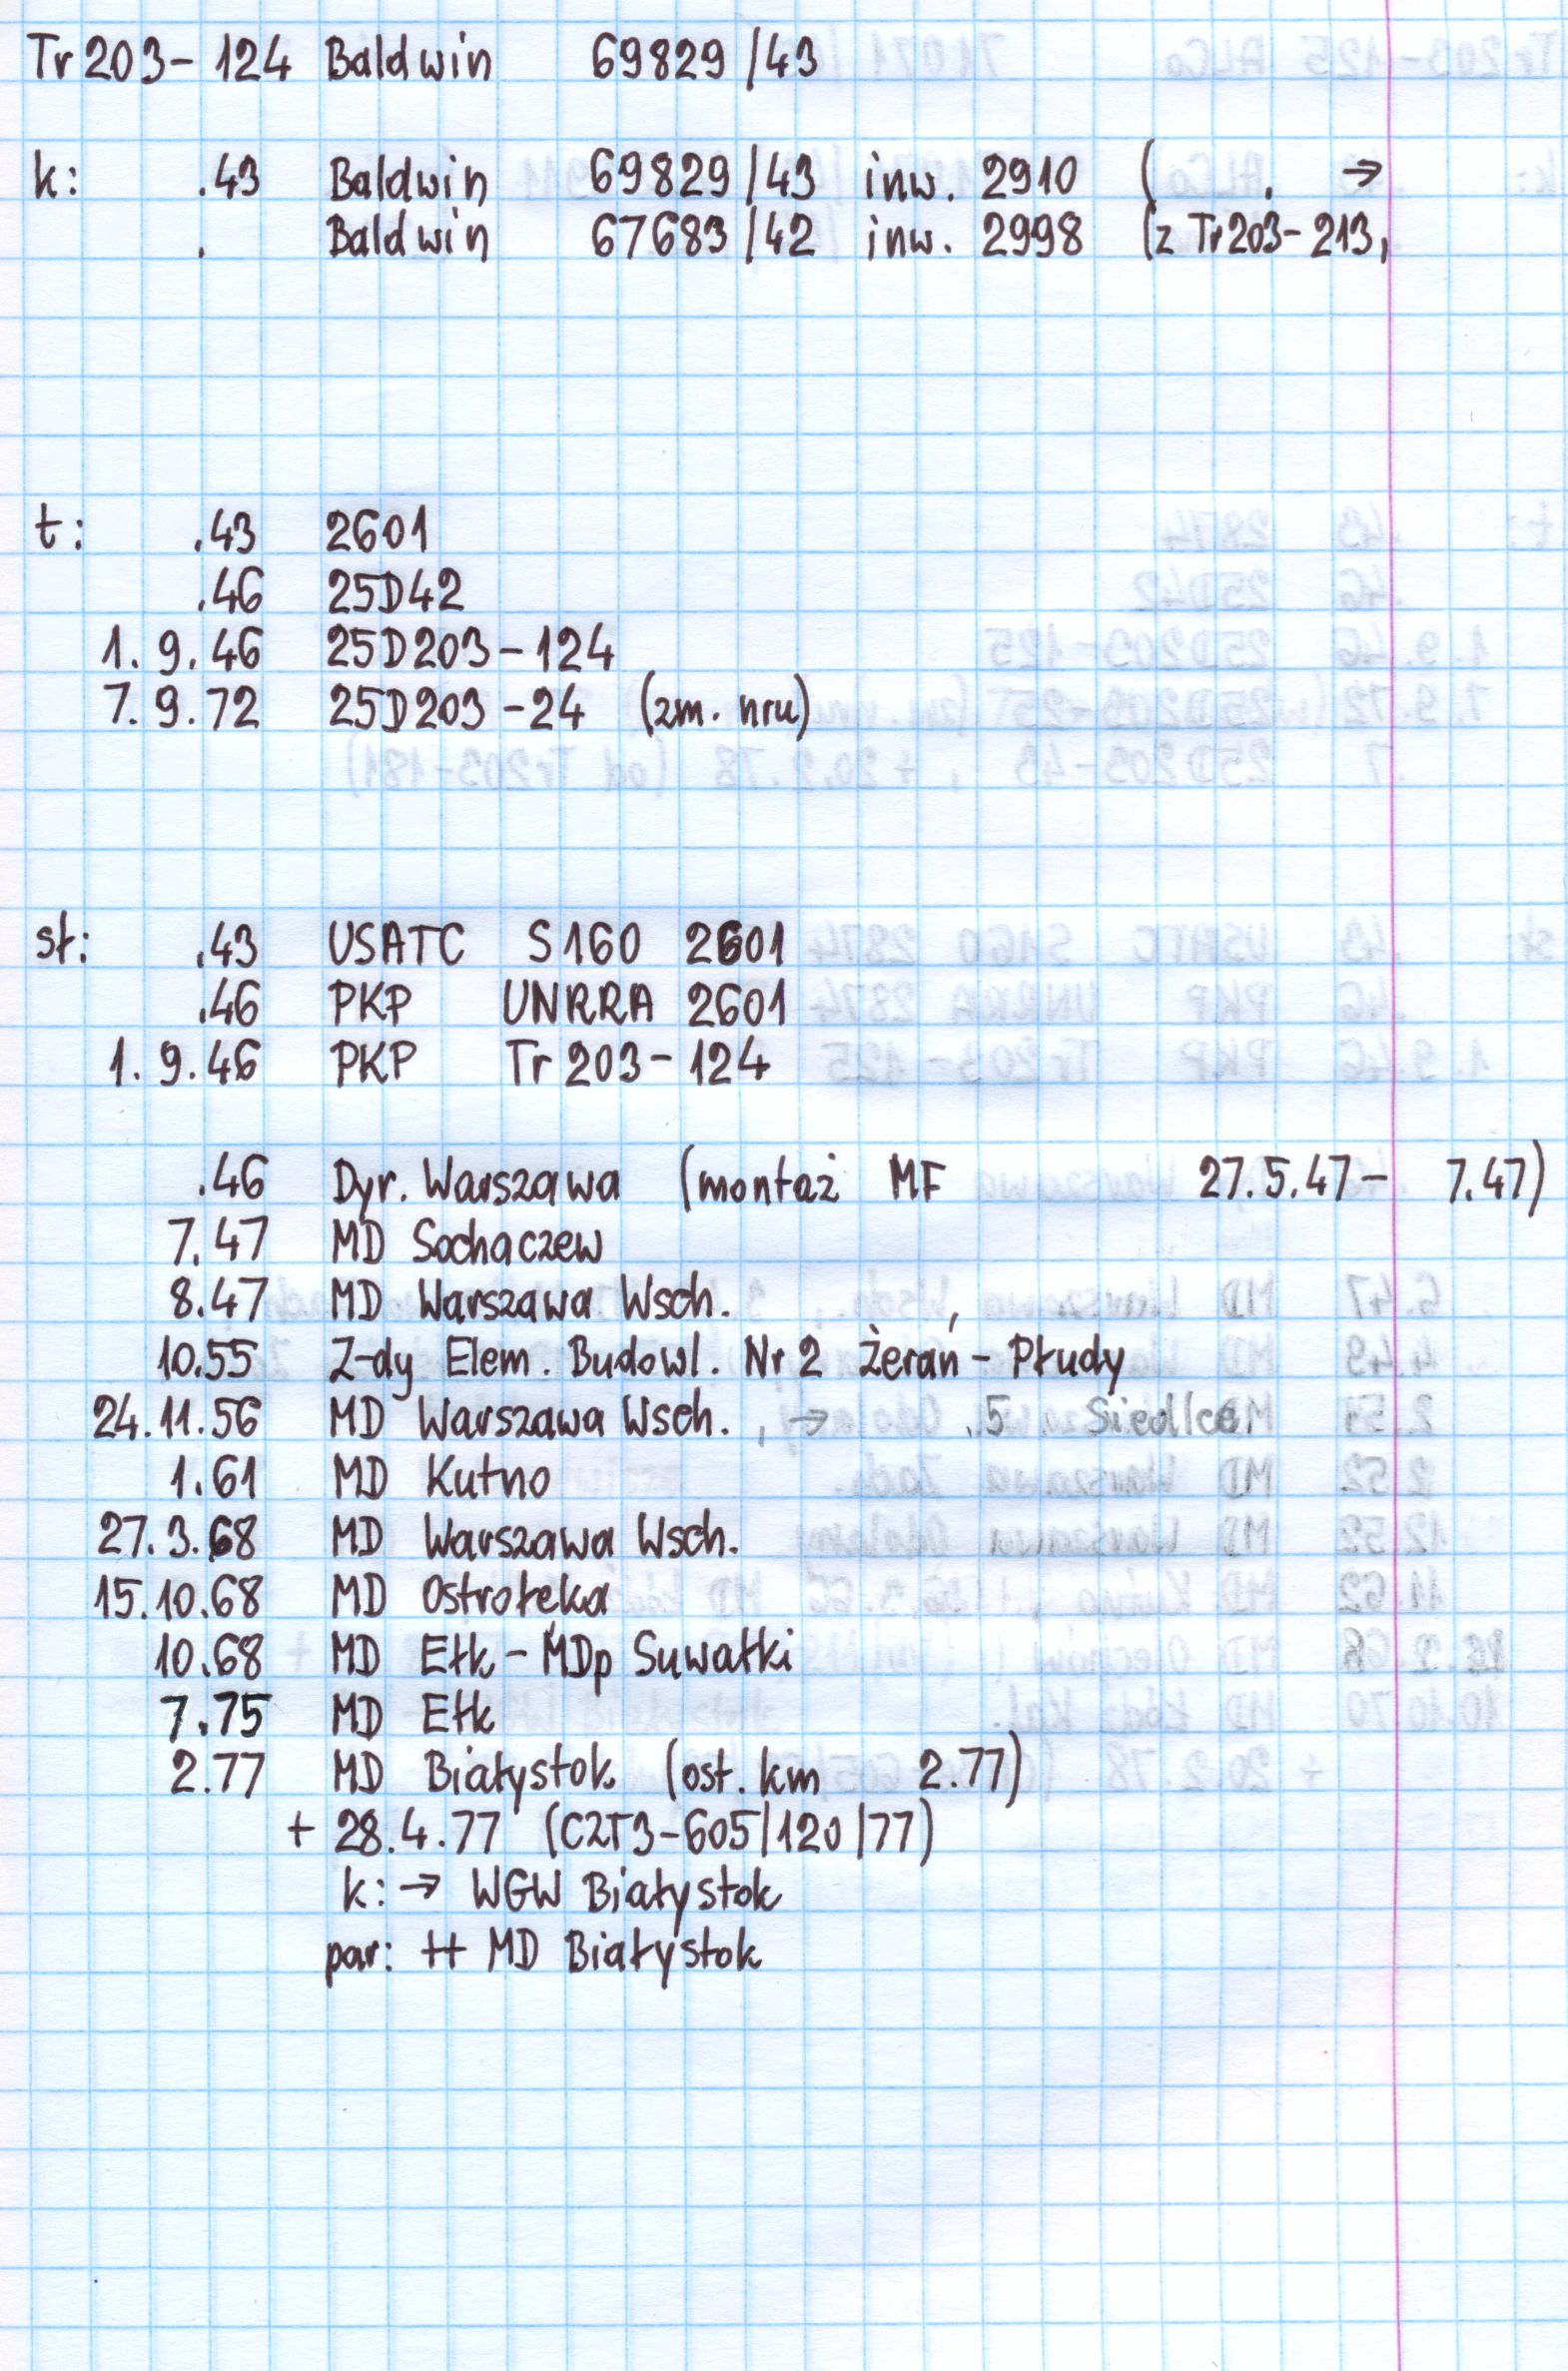 Tr203-124 Baldwin 69829/43
k: .43 Baldwin 69829/43 inw. 2910 ( . →
. Baldwin 67683/42 inw. 2998 (z Tr203-213,
t: .43 2601
.46 25D42
1.9.46 25D203-124
7.9.72 25D203-24 (zm. nru)
st: .43 USATC S160 2601
.46 PKP UNRRA 2601
1.9.46 PKP Tr203-124
.46 Dyr. Warszawa (montaż MF 27.5.47- 7.47)
7.47 MD Sochaczew
8.47 MD Warszawa Wsch.
10.55 Z-dy Elem. Budowl. Nr 2 Żerań - Płudy
24.11.56 MD Warszawa Wsch., → .5 Siedlce
1.61 MD Kutno
27.3.68 MD Warszawa Wsch.
15.10.68 MD Ostrołęka
10.68 MD Ełk - MDp Suwałki
7.75 MD Ełk
2.77 MD Białystok (ost. km 2.77)
+ 28.4.77 (C2T3-605/120/77)
k: → WGW Białystok
par: ++ MD Białystok